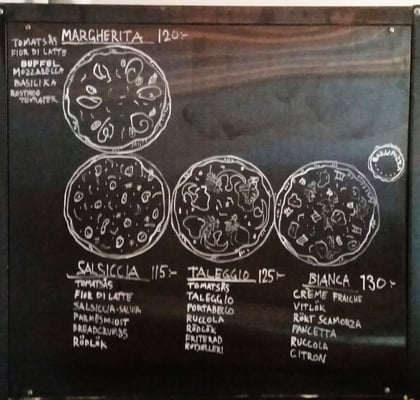 MARGHERITA 120:-
TOMATSÅS
FIOR DI LATTE
BUFFEL
MOZZARELLA
BASILIKA
ROSTADE
TOMATER
SALSICCIA 115:-
TOMATSÅS
FIOR DI LATTE
SALSICCIA-SALVIA
BREADCRUMBS
RÖDLÖK
TALEGGIO 125:-
TOMATSÅS
TALEGGIO
PORTABELLO
RUCCOLA
RÖDLÖK
FRITERAD
BIANCA 130:-
CRÈME FRAICHE
VITLÖK
RÖKT SCAMORZA
PANCETTA
RUCCOLA
CITRON